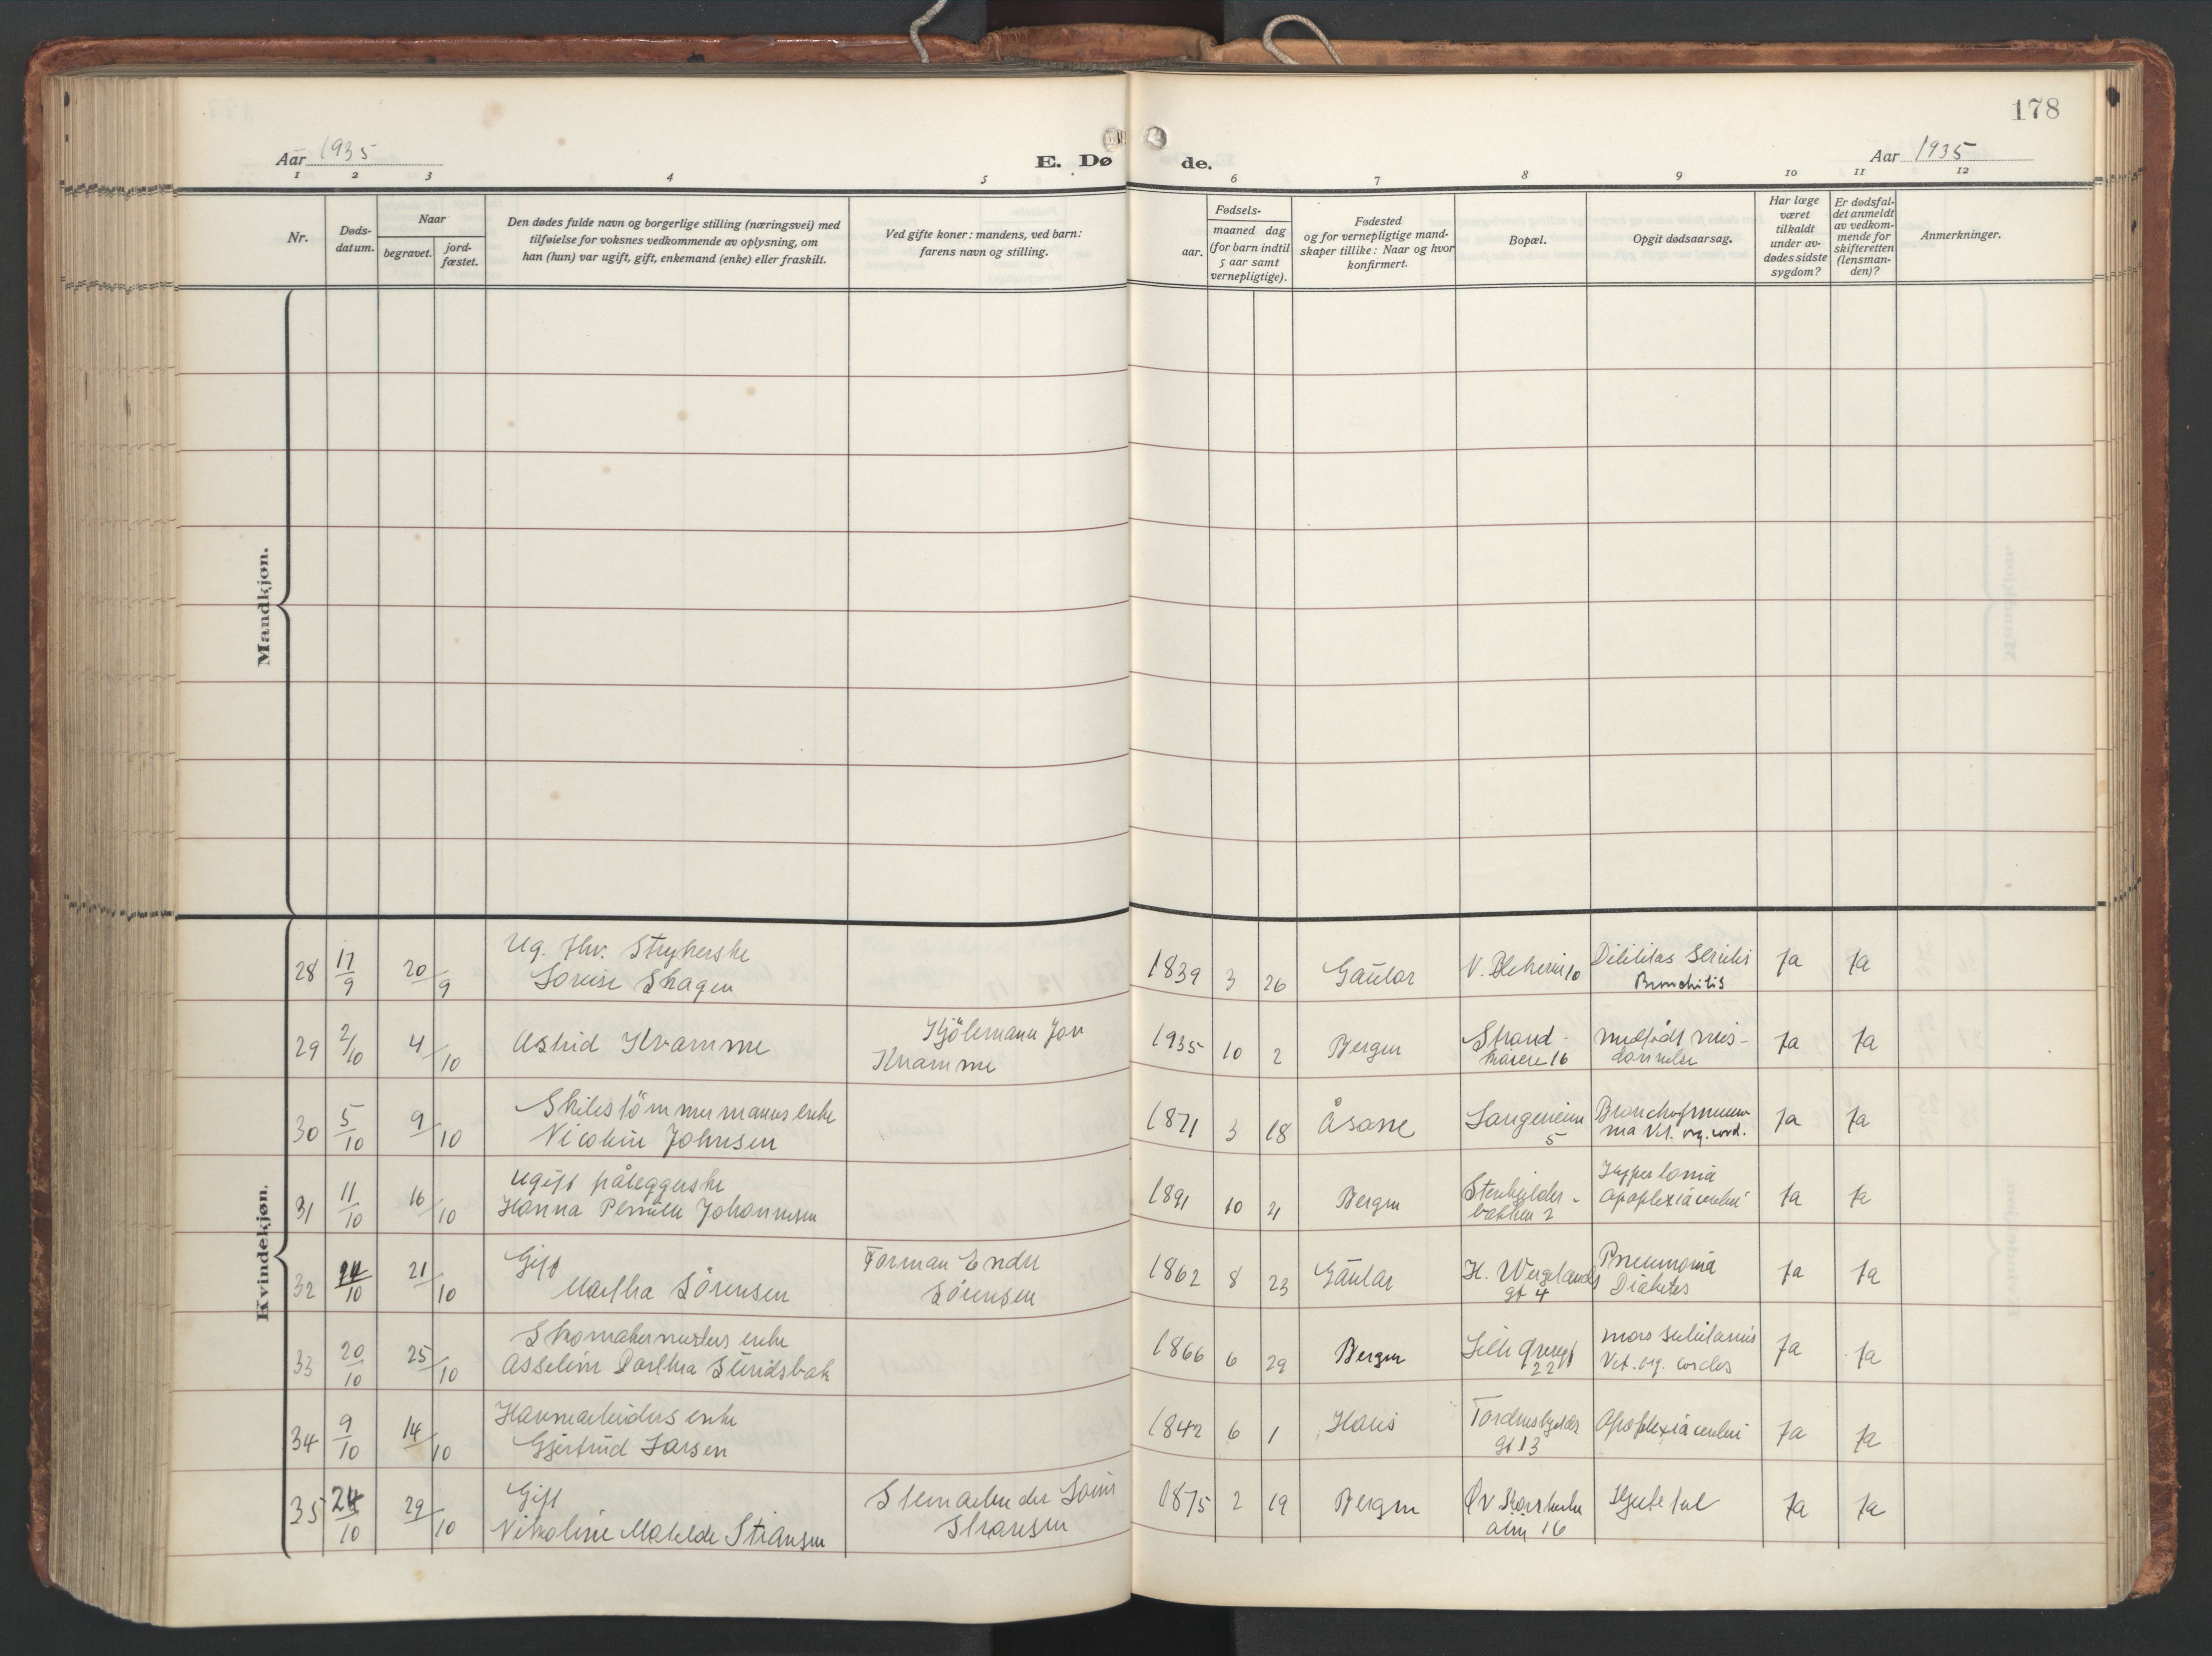 178
Aar 1935
E. Dø
de.
Aar 1935
1 2 3 4 5 6 7 8 9 10 11 12
Nr.
Døds-
datum.
Naar
begravet.
jord-
fæstet.
Den dødes fulde navn og borgerlige stilling (næringsvei) med
tilføielse for voksnes vedkommende av oplysning, om
han (hun) var ugift, gift, enkemand (enke) eller fraskilt.
Ved gifte koner: mandens, ved barn:
farens navn og stilling.
Fødsels-
aar.
maaned dag
(for barn indtil
5 aar samt
vernepligtige).
Fødested
og for vernepligtige mand-
skaper tillike: Naar og hvor
konfirmert.
Bopæl.
Opgit dødsaarsag.
Har læge
været
tilkaldt
under av-
dødes sidste
sygdom?
Er dødsfal-
det anmeldt
av vedkom-
mende for
skifteretten
(lensman-
den)?
Anmerkninger.
Mandkjøn.
Kvindekjøn.
28 17/9 20/9 Ug. fhv. Strykerske
Lovise Skagen
1839 3 26 Gaular V. 10
Bronchitis
Ja Ja
29 2/10 4/10 Astrid Kramme
Jon
Kramme
1935 10 2 Bergen Strand-
16
medfødt mis-
dannelse
Ja Ja
30 5/10 9/10 Skibstömmermanns enke
Nicoline Johnsen
1871 3 18 Åsane
5
Vit. org. cord.
Ja Ja
31 11/10 16/10 Ugift påleggerske
Hanna Pernille Johannesen
1891 10 21 Bergen Stenkjelder-
bakken 2
Hypertonia
Apoplexia cerebri
Ja Ja
32 10 21/10 Gift
Martha Sörensen
Forman Endre
Sörensen
1862 8 23 Gaular H. Wergelands
gt 4
Pneumonia
Diabetes
Ja Ja
33 20/10 25/10 Skomakermesters enke
Asseline Dorthea
1866 6 29 Bergen Lille Øvregt
22
mors subitanus
Vit. org. cordis
Ja Ja
34 9/10 14/10 Havnearbeiders enke
Gjertrud Larsen
1842 6 1 Haus Tordenskjolds
gt 13
Apoplexia cerebri
Ja Ja
35 24/10 29/10 Gift
Nikoline Matilde Stiansen
Stenarbeider Louis
Stiansen
1875 2 19 Bergen Øv
alm 16
Hjertefeil
Ja Ja